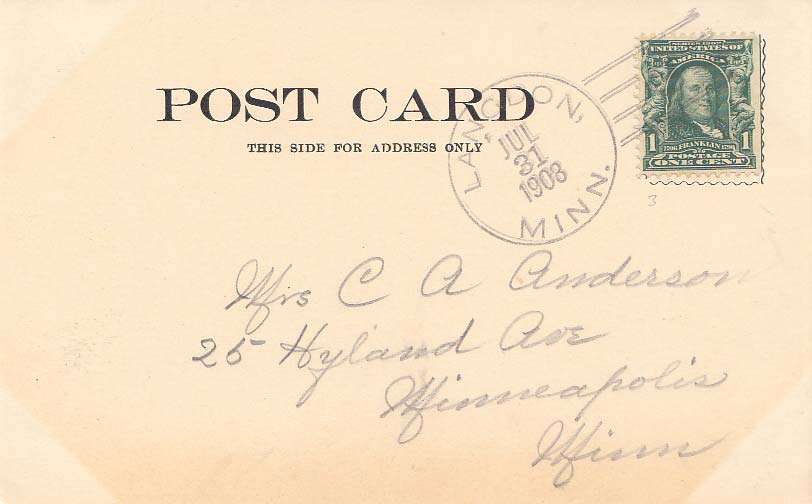 POST CARD
THIS SIDE FOR ADDRESS ONLY
LANGDON,
JUL
31
1908
MINN.
SERIES 1902
UNITED STATES OF
AMERICA
1 1706 FRANKLIN 1790 1
POSTAGE
ONE CENT
3
Mrs C A Anderson
25 Hyland Ave
Minneapolis
Minn